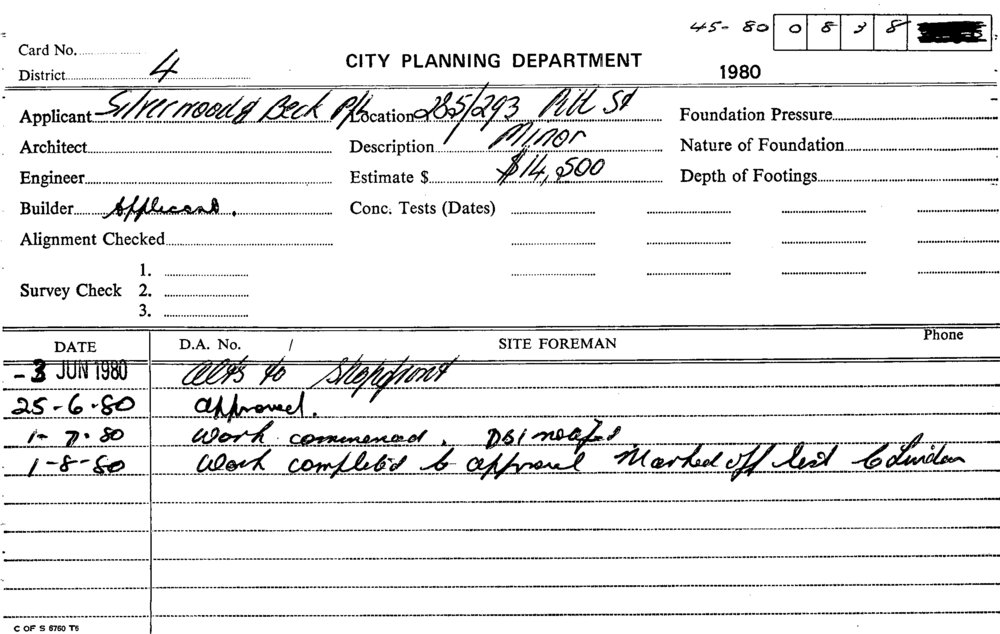 45-80 0 8 3 8
Card No.
District 4
CITY PLANNING DEPARTMENT
1980
Applicant Silverwood & Beck P/L Location 285/293 Pitt St Foundation Pressure
Architect Description Minor Nature of Foundation
Engineer Estimate $ $14,500 Depth of Footings
Builder Applicant. Conc. Tests (Dates)
Alignment Checked
1.
Survey Check 2.
3.
DATE D.A. No. / SITE FOREMAN Phone
- 3 JUN 1980 Alts to Shopfront
25-6-80 Approved.
1-7-80 Work commenced. DBI
1-8-80 Work completed to approval Marked off list
C OF S 6760 T6